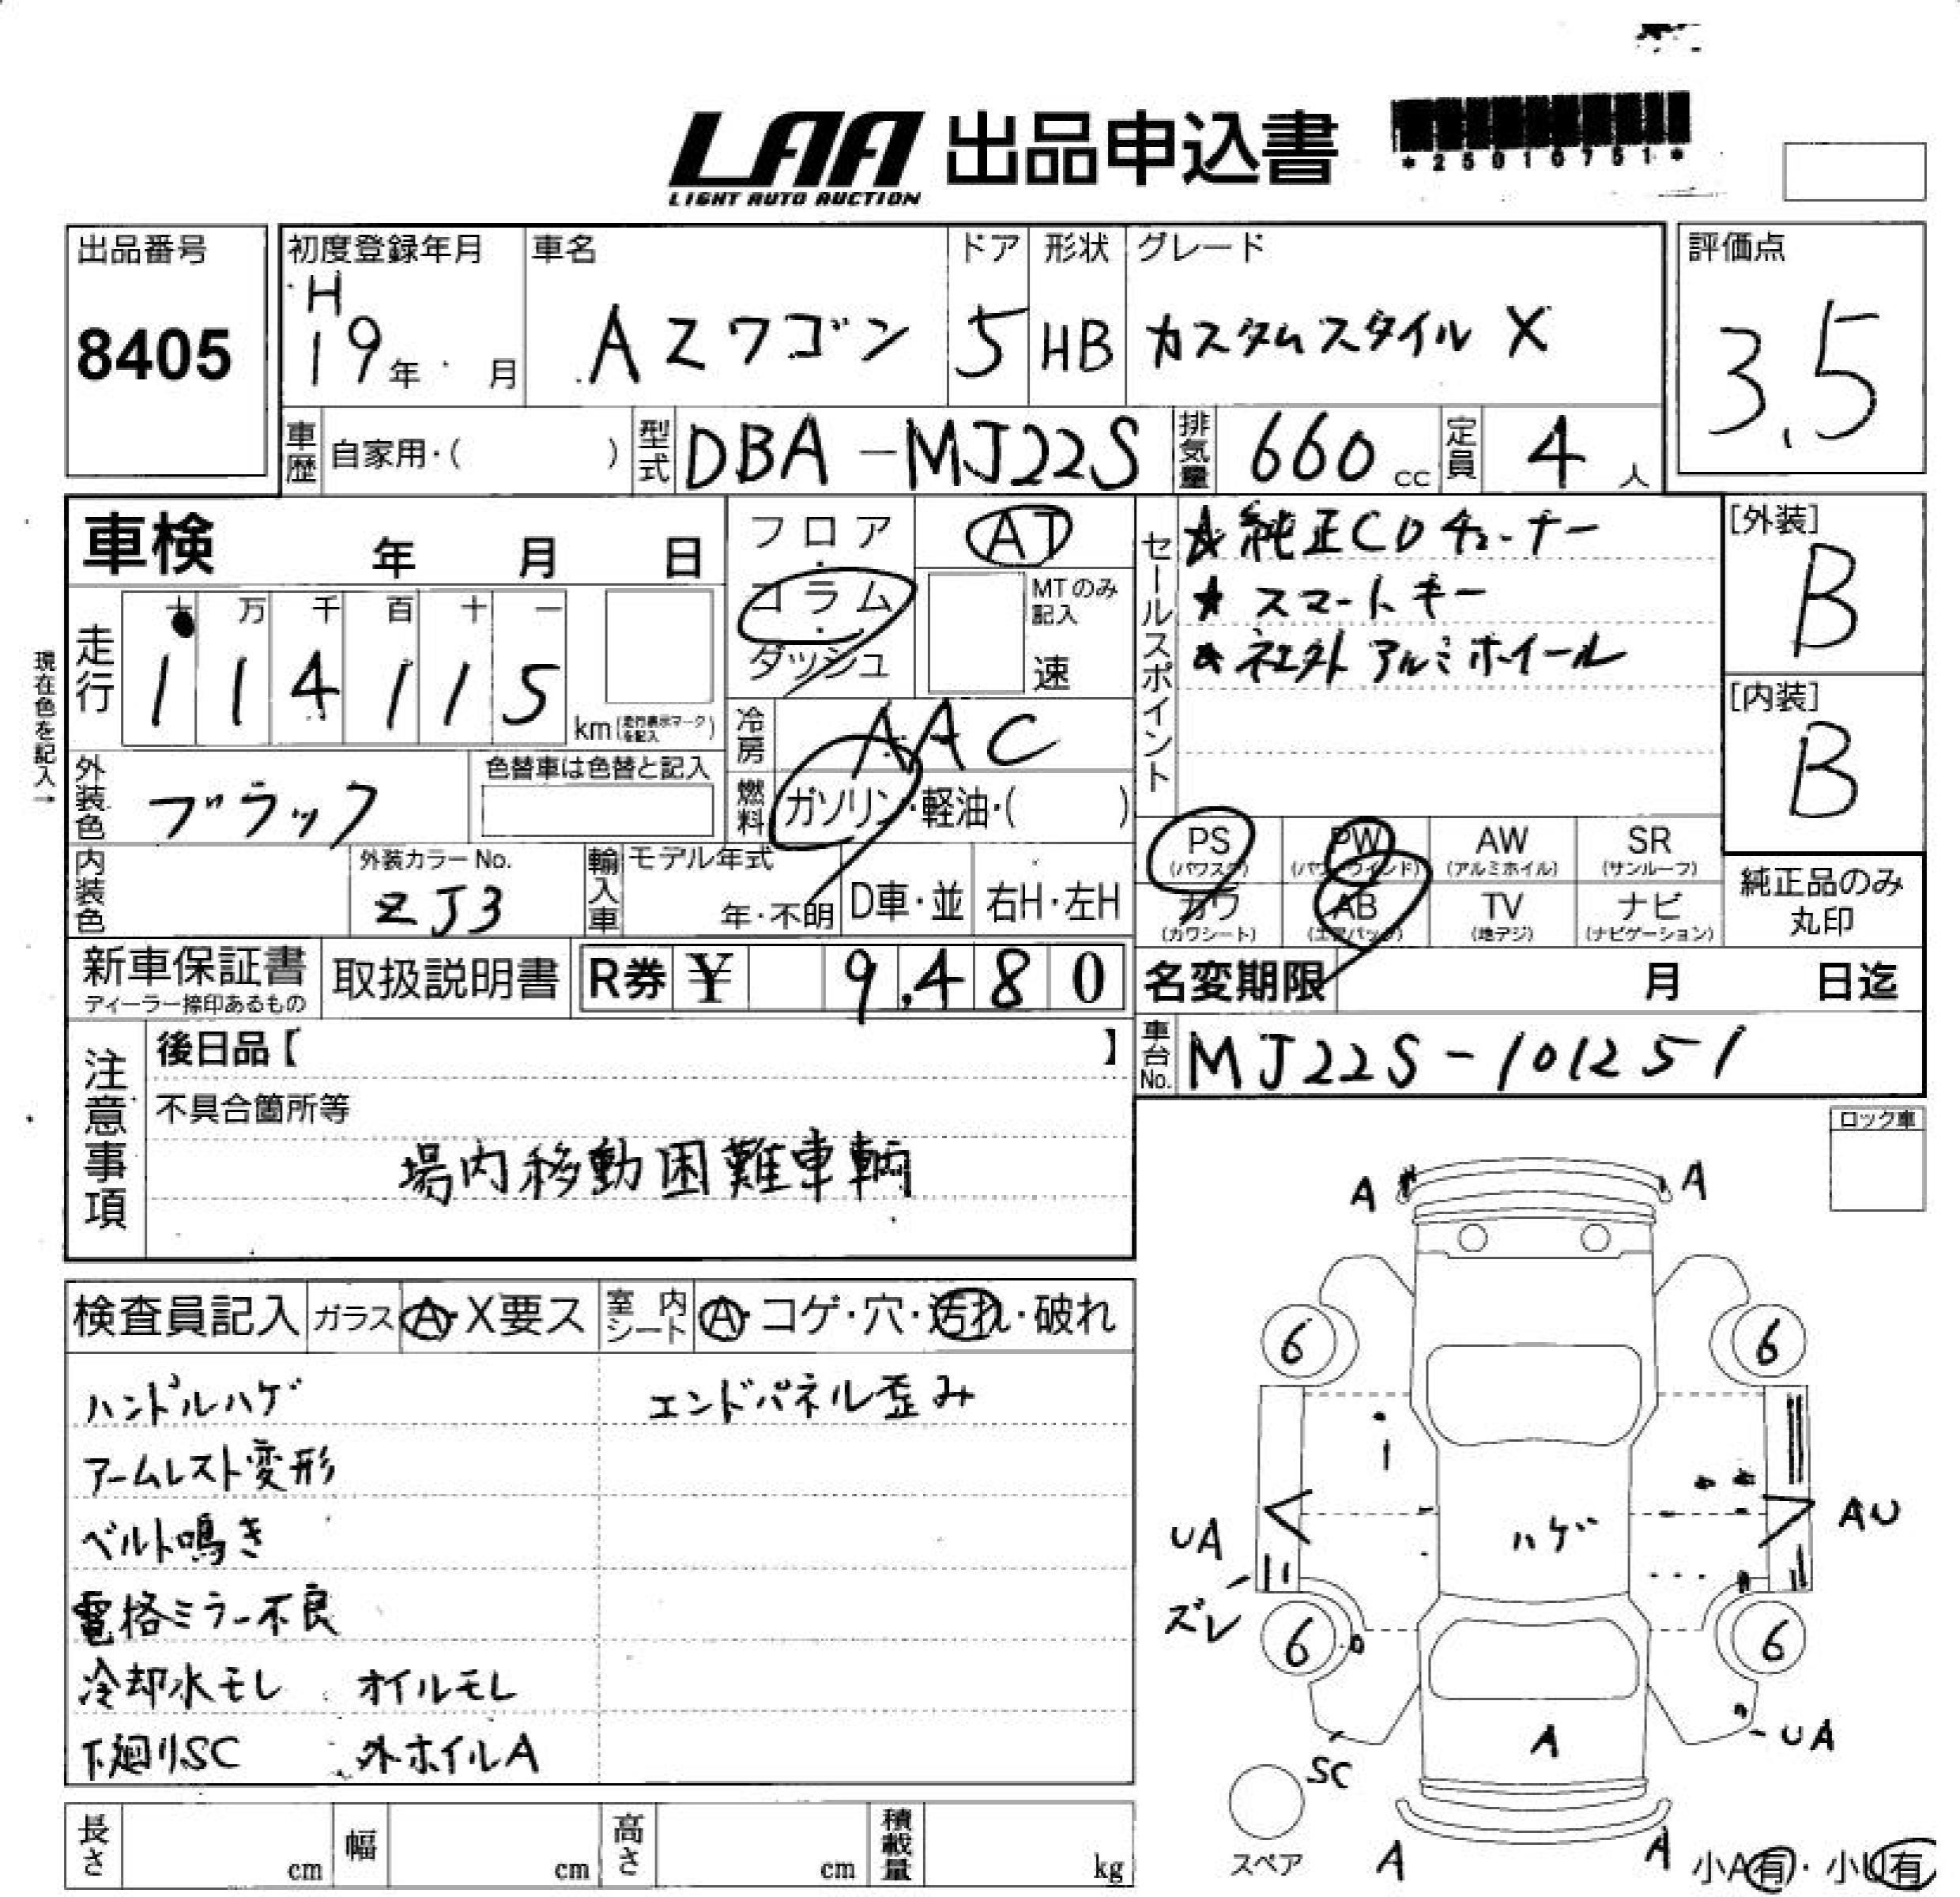 LAA 出品申込書
LIGHT AUTO AUCTION
*25010751*
出品番号
8405
初度登録年月
H
19年 月
車名
AZワゴン
ドア
5
形状
HB
グレード
カスタムスタイル X
評価点
3.5
車歴 自家用・( )
型式 DBA-MJ22S
排気量 660 cc
定員 4 人
車検 年 月 日
現在色を記入→
走行
十 万 千 百 十 一
1 1 4 1 1 5
km(走行表示マークを記入)
フロア
・
コラム
・
ダッシュ
AT
MTのみ記入
速
冷房 AAC
燃料 ガソリン・軽油・( )
外装色 ブラック
色替車は色替と記入
内装色
外装カラーNo.
ZJ3
輸入車
モデル年式
年・不明
D車・並
右H・左H
新車保証書
ディーラー捺印あるもの
取扱説明書
R券 ¥ 9,480
セールスポイント
★純正CDチューナー
★スマートキー
★社外アルミホイール
[外装]
B
[内装]
B
PS
(パワステ)
PW
(パワーウインド)
AW
(アルミホイル)
SR
(サンルーフ)
カワ
(カワシート)
AB
(エアバック)
TV
(地デジ)
ナビ
(ナビゲーション)
純正品のみ
丸印
名変期限 月 日迄
車台No. MJ22S-101251
注意事項
後日品【 】
不具合箇所等
場内移動困難車輌
ロック車
検査員記入 ガラス A・X要ス 室内シート A・コゲ・穴・汚れ・破れ
ハンドルハゲ エンドパネル歪み
アームレスト変形
ベルト鳴き
電格ミラー不良
冷却水モレ オイルモレ
下廻りSC 外ホイルA
A A
6 6
UA ハゲ AU
ズレ
6 6
SC A UA
スペア A A
小A有・小U有
長さ cm 幅 cm 高さ cm 積載量 kg